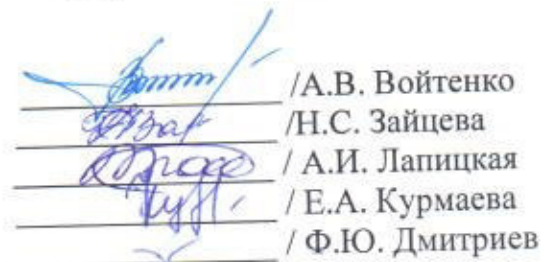 /А.В. Войтенко
/Н.С. Зайцева
/ А.И. Лапицкая
/ Е.А. Курмаева
/ Ф.Ю. Дмитриев